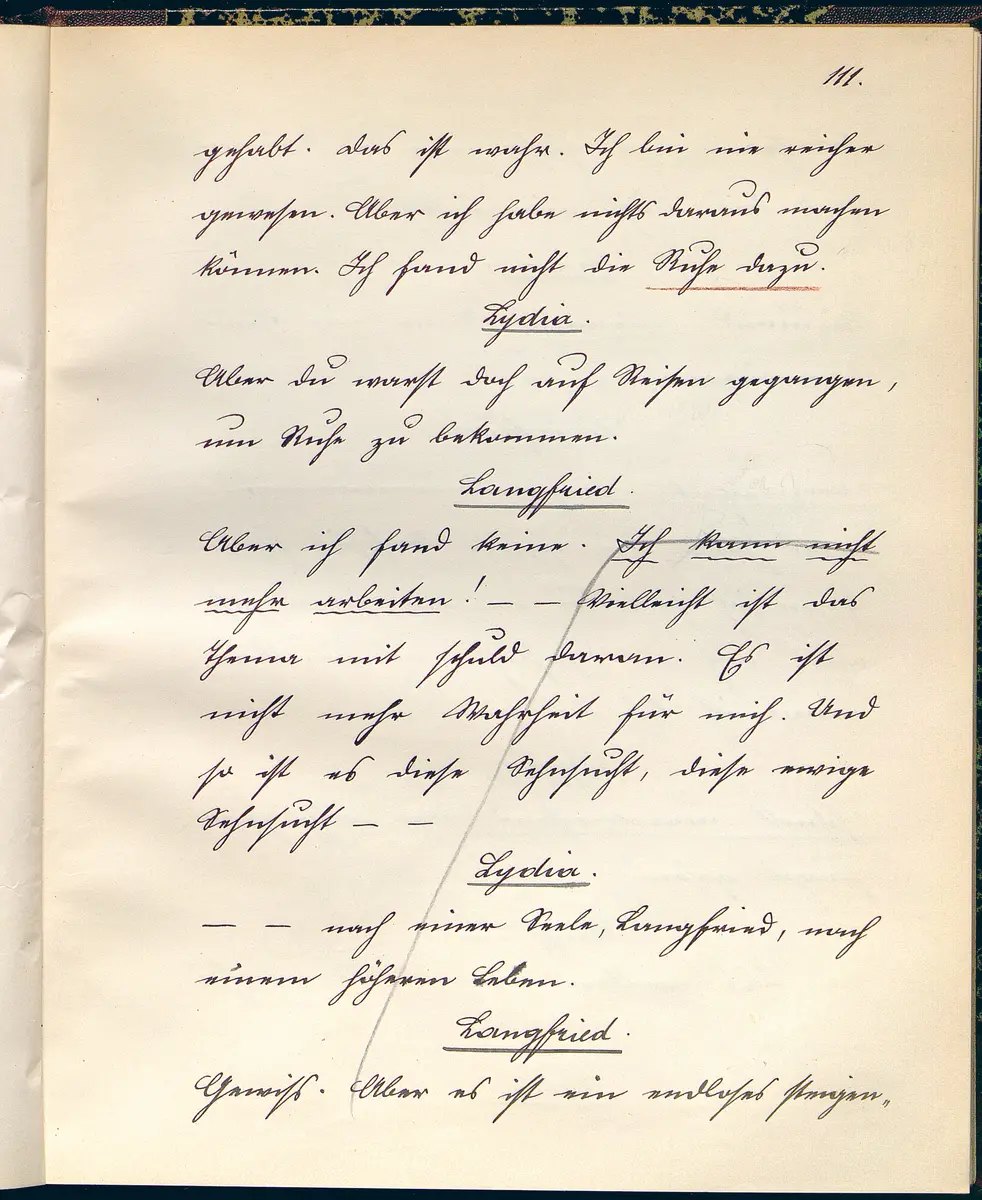 111.
gehabt. Das ist wahr. Ich bin nie reicher
gewesen. Aber ich habe nichts daraus machen
können. Ich fand nicht die Ruhe dazu.
Lydia.
Aber du warst doch auf Reisen gegangen,
um Ruhe zu bekommen.
Langfried.
Aber ich fand keine. Ich kann nicht
mehr arbeiten! — — Vielleicht ist das
Thema mit schuld daran. Es ist
nicht mehr Wahrheit für mich. Und
so ist es diese Sehnsucht, diese ewige
Sehnsucht — —
Lydia.
— — nach einer Seele, Langfried, nach
einem höheren Leben.
Langfried.
Gewiss. Aber es ist ein endloses steigen„